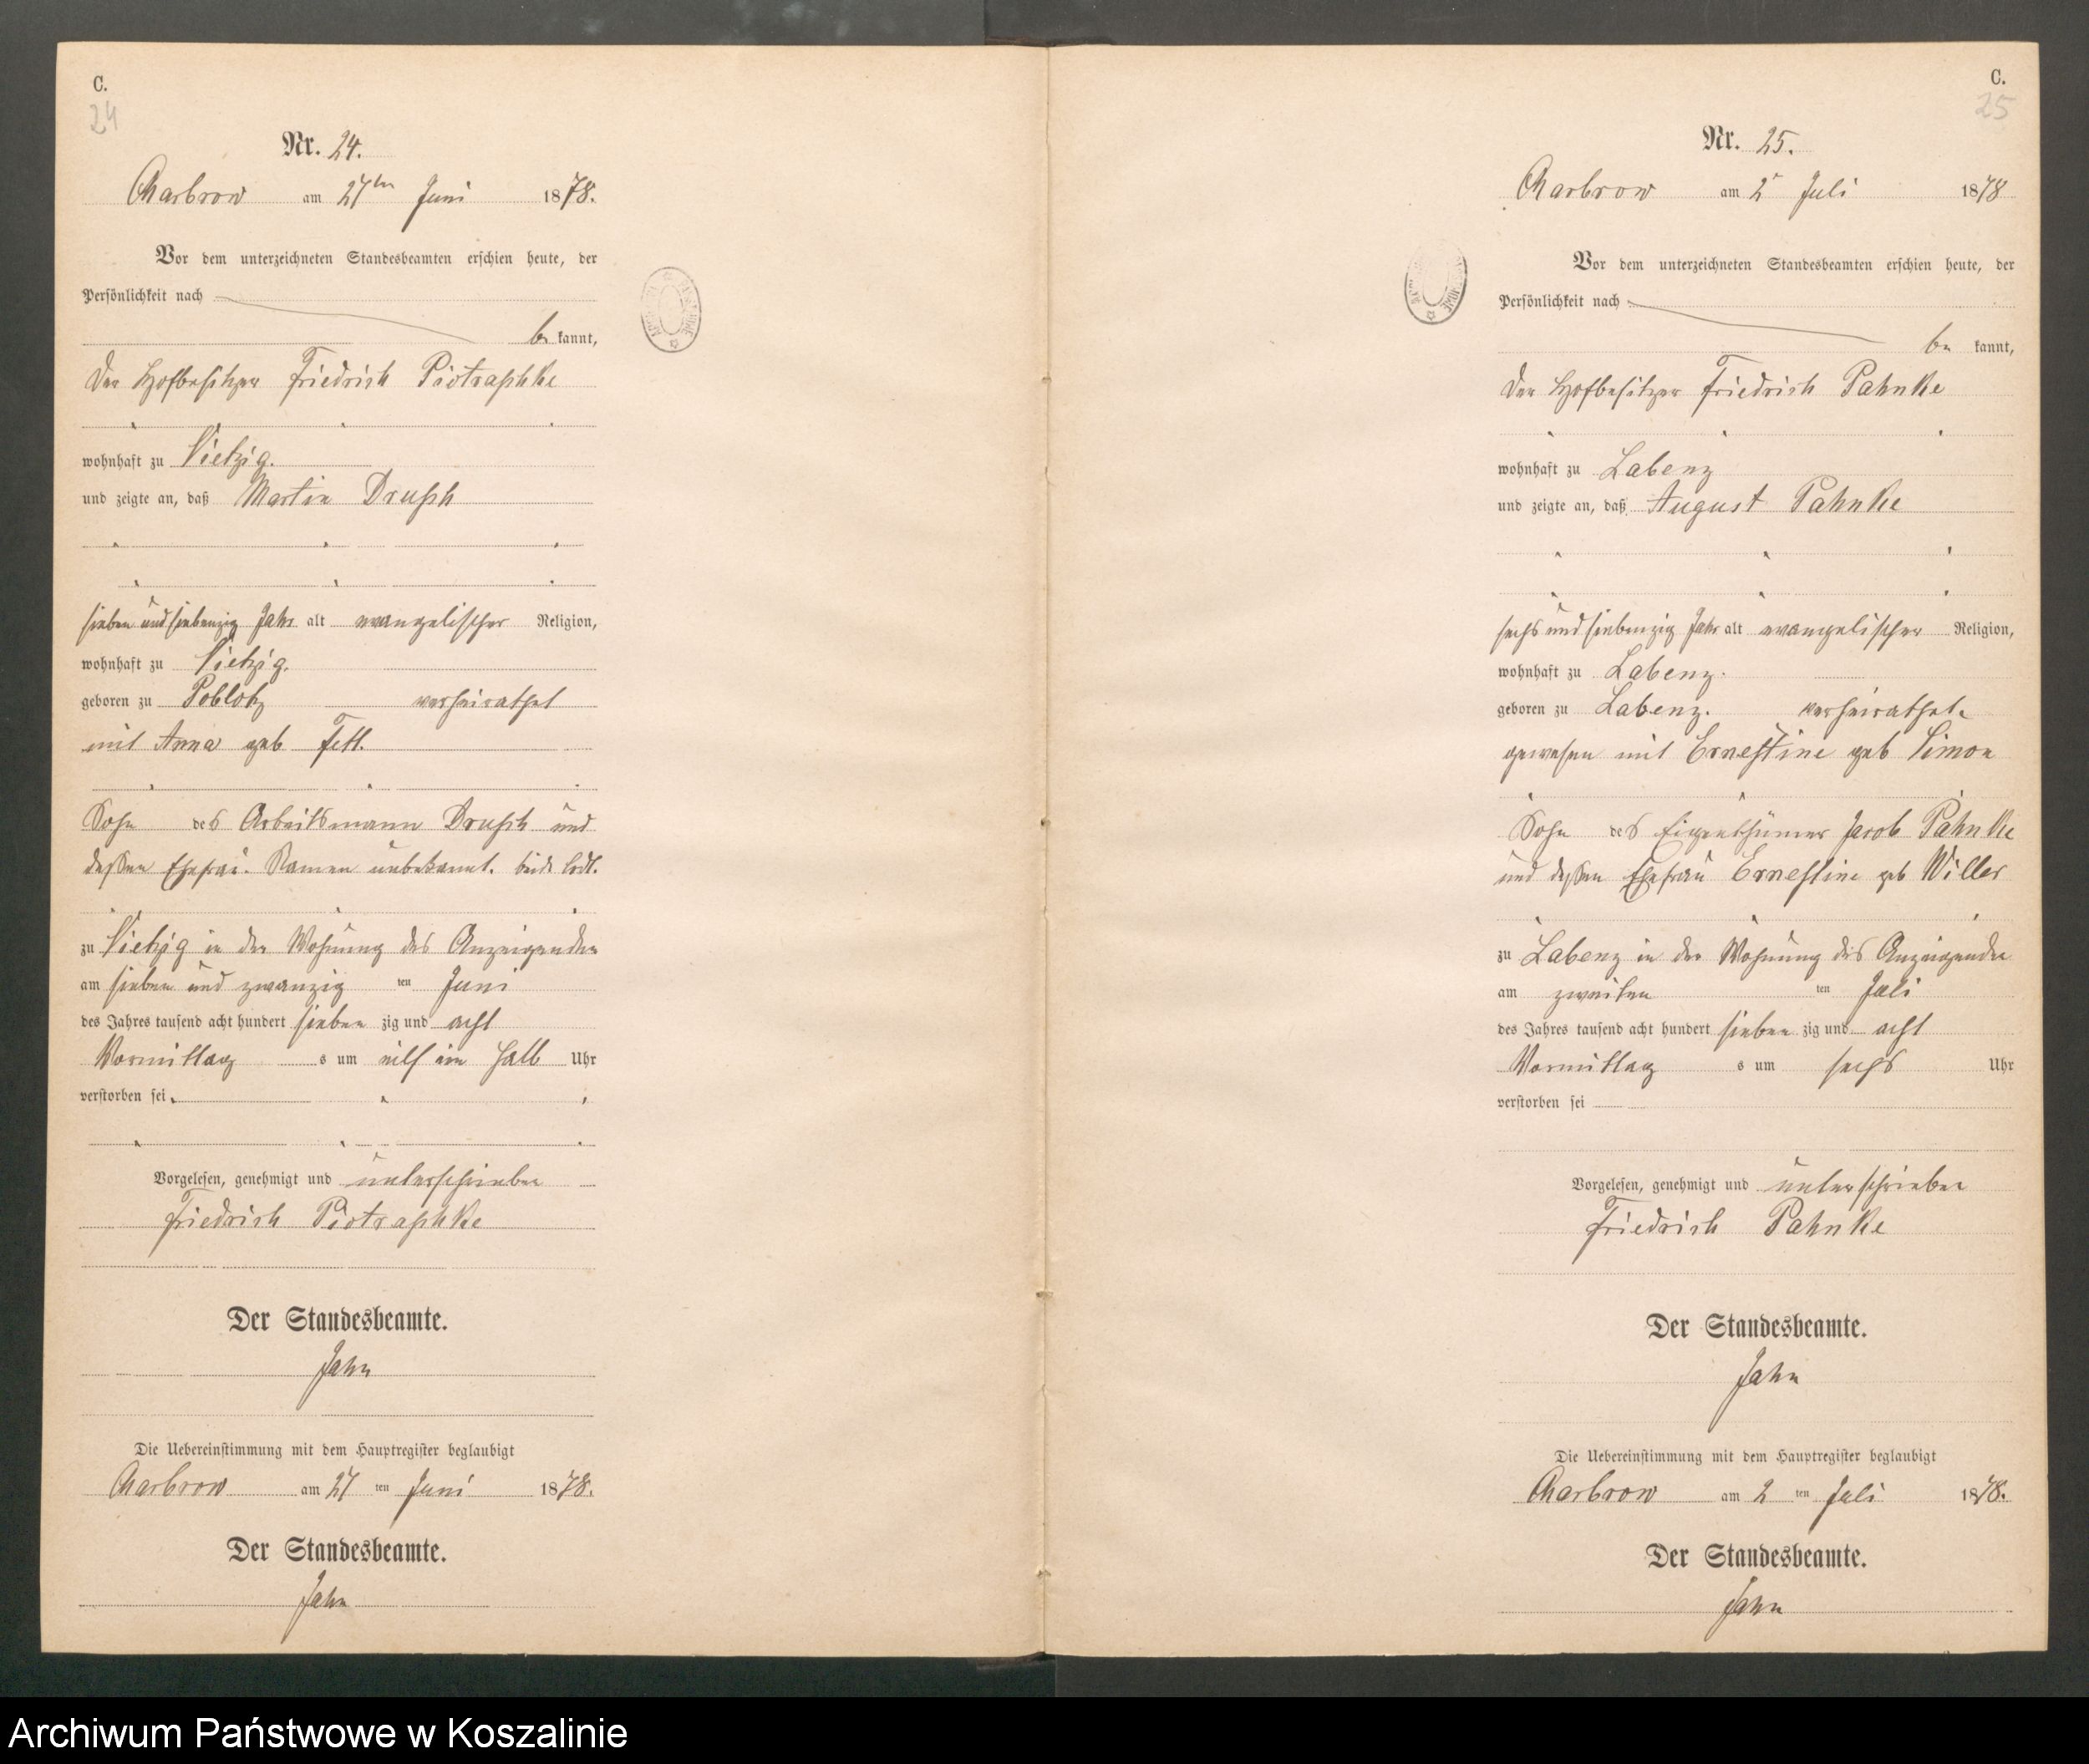 C.
24
Nr. 24.
Charbrow am 27ten Juni 1878.
Vor dem unterzeichneten Standesbeamten erschien heute, der
Persönlichkeit nach
be kannt,
der Hofbesitzer Friedrich Piotraschke
wohnhaft zu Vietzig.
und zeigte an, daß Martin Drusch
sieben und siebenzig Jahr alt evangelischer Religion,
wohnhaft zu Vietzig.
geboren zu Poblotz verheirathet
mit Anna geb Fett.
Sohn des Arbeitsmann Drusch und
dessen Ehefrau. Namen unbekannt. beide todt.
zu Vietzig in der Wohnung des Anzeigenden
am sieben und zwanzig ten Juni
des Jahres tausend acht hundert sieben zig und acht
Vormittag s um eilf ein halb Uhr
verstorben sei
Vorgelesen, genehmigt und unterschrieben
Friedrich Piotraschke
Der Standesbeamte.
Jahn
Die Uebereinstimmung mit dem Hauptregister beglaubigt
Charbrow am 27 ten Juni 1878.
Der Standesbeamte.
Jahn
C.
25
Nr. 25.
Charbrow am 2t Juli 1878
Vor dem unterzeichneten Standesbeamten erschien heute, der
Persönlichkeit nach
be kannt,
der Hofbesitzer Friedrich Pahnke
wohnhaft zu Labenz
und zeigte an, daß August Pahnke
sechs und siebenzig Jahr alt evangelischer Religion,
wohnhaft zu Labenz.
geboren zu Labenz. verheirathet
gewesen mit Ernestine geb Simon
Sohn des Eigenthümer Jacob Pahnke
und dessen Ehefrau Ernestine geb Willer
zu Labenz in der Wohnung des Anzeigenden
am zweiten ten Juli
des Jahres tausend acht hundert sieben zig und acht
Vormittag s um sechs Uhr
verstorben sei
Vorgelesen, genehmigt und unterschrieben
Friedrich Pahnke
Der Standesbeamte.
Jahn
Die Uebereinstimmung mit dem Hauptregister beglaubigt
Charbrow am 2 ten Juli 1878.
Der Standesbeamte.
Jahn
Archiwum Państwowe w Koszalinie